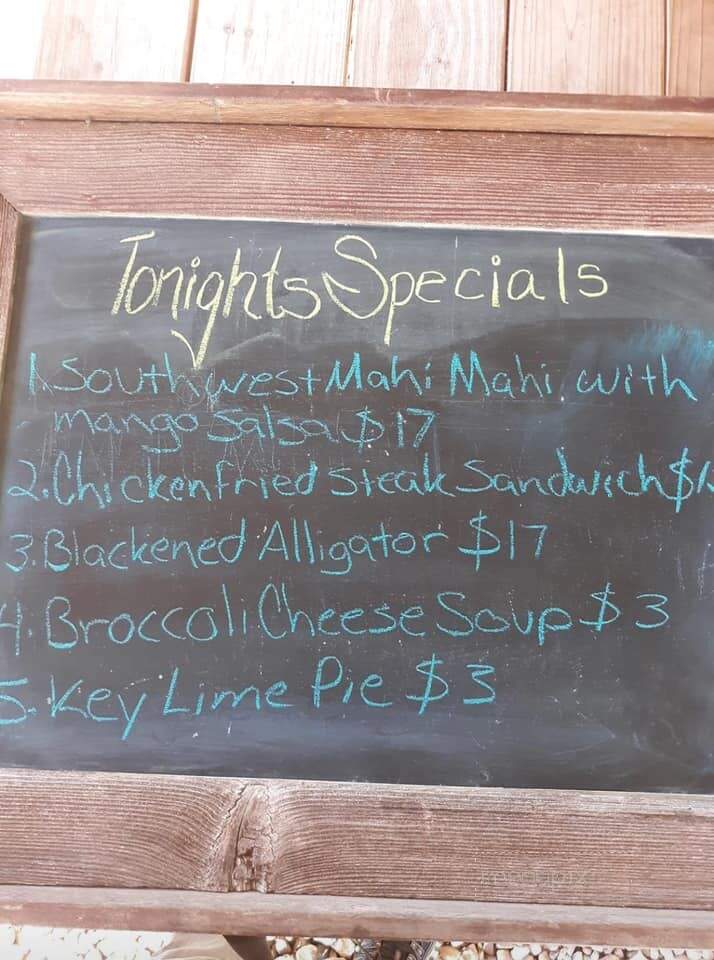 Tonights Specials
1. Southwest Mahi Mahi with
mango Salsa $17
2. Chicken fried Steak Sandwich
3. Blackened Alligator $17
4. Broccoli Cheese Soup $3
5. Key Lime Pie $3